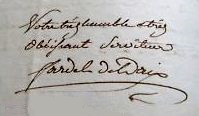 Votre très humble & très
Obéissant Serviteur
Jardel de